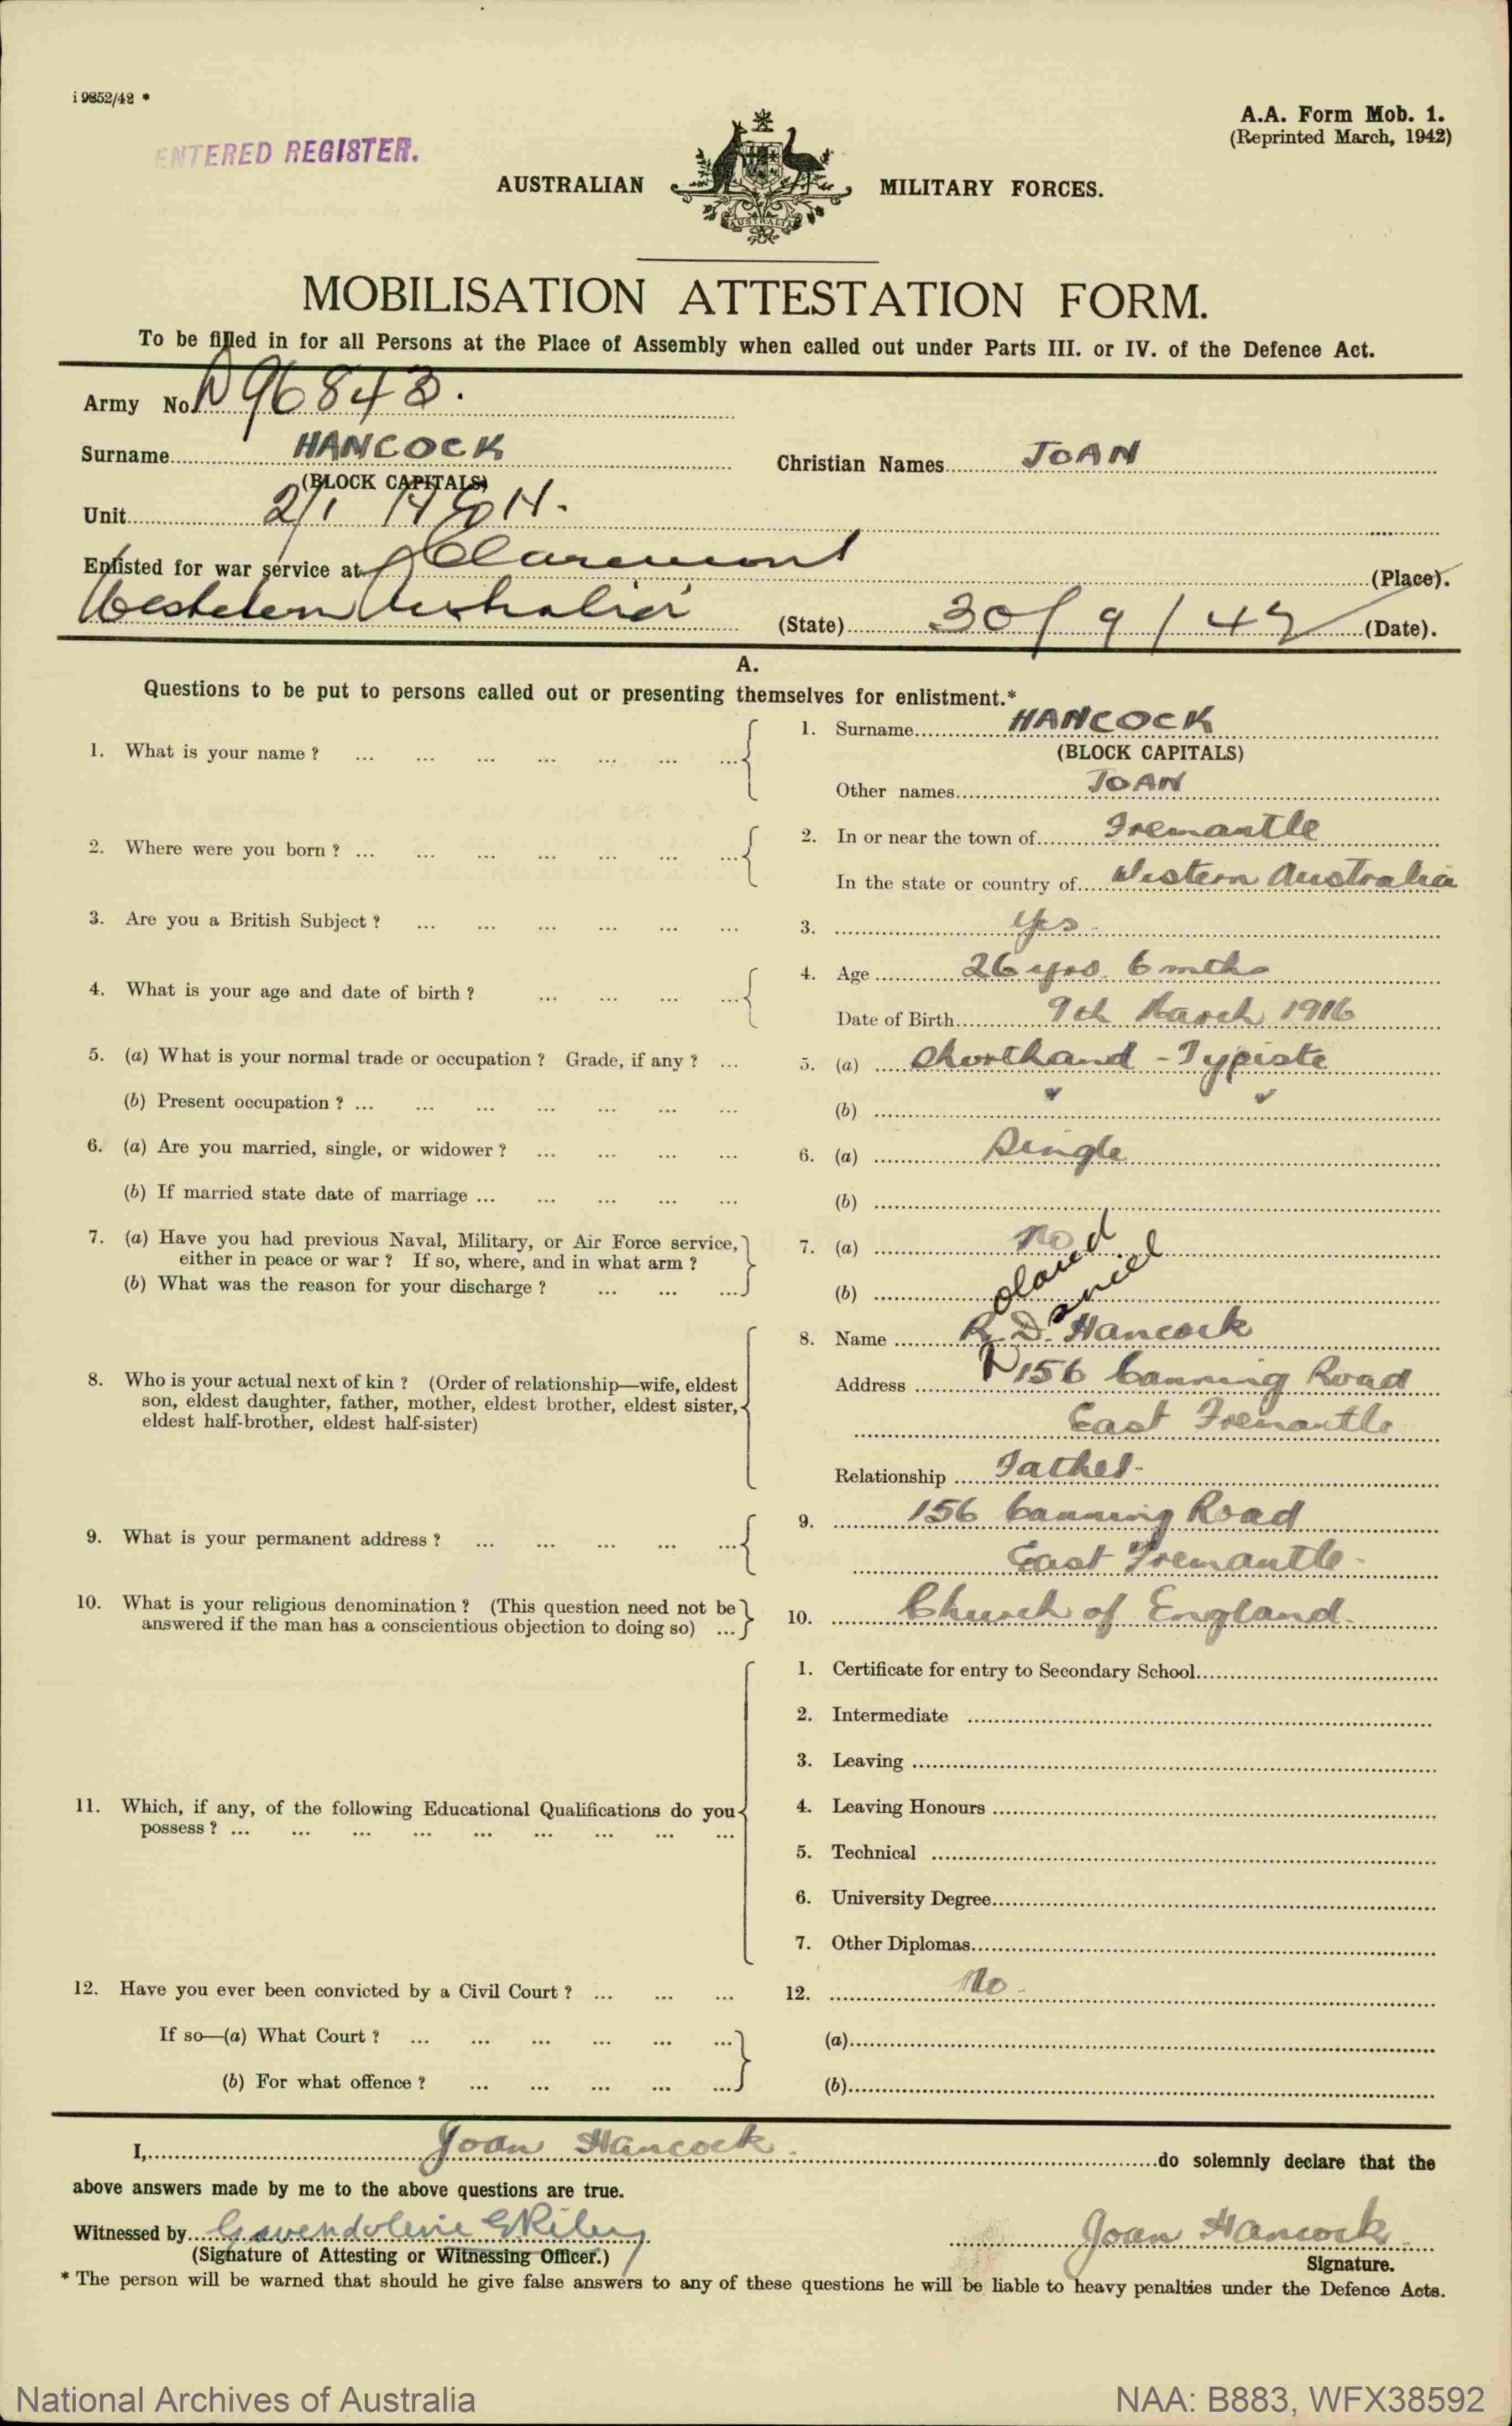 i 9852/42 *
A.A. Form Mob. 1.
(Reprinted March, 1942)
ENTERED REGISTER.
AUSTRALIAN MILITARY FORCES.
AUSTRALIA
MOBILISATION ATTESTATION FORM.
To be filled in for all Persons at the Place of Assembly when called out under Parts III. or IV. of the Defence Act.
Army No. 96843.
Surname HANCOCK Christian Names JOAN
(BLOCK CAPITALS)
Unit 2/1
Enlisted for war service at Claremont (Place).
Western Australia (State) 30/9/42 (Date).
A.
Questions to be put to persons called out or presenting themselves for enlistment.*
1. What is your name ? ... 1. Surname HANCOCK
(BLOCK CAPITALS)
Other names JOAN
2. Where were you born ? ... 2. In or near the town of Fremantle
In the state or country of Western Australia
3. Are you a British Subject ? ... 3. Yes
4. What is your age and date of birth ? ... 4. Age 26 yrs. 6 mths
Date of Birth 9th March 1916
5. (a) What is your normal trade or occupation ? Grade, if any ? ... 5. (a) Shorthand - Typiste
(b) Present occupation ? ... (b) ✓ ✓
6. (a) Are you married, single, or widower ? ... 6. (a) Single
(b) If married state date of marriage ... (b)
7. (a) Have you had previous Naval, Military, or Air Force service, 7. (a) No
either in peace or war ? If so, where, and in what arm ?
(b) What was the reason for your discharge ? ... (b)
oland aniel
8. Name R. D. Hancock
8. Who is your actual next of kin ? (Order of relationship—wife, eldest
son, eldest daughter, father, mother, eldest brother, eldest sister,
eldest half-brother, eldest half-sister)
Address 156 Canning Road
East Fremantle
Relationship Father
9. What is your permanent address ? ... 9. 156 Canning Road
East Fremantle
10. What is your religious denomination ? (This question need not be
answered if the man has a conscientious objection to doing so) ... 10. Church of England
11. Which, if any, of the following Educational Qualifications do you
possess ? ...
1. Certificate for entry to Secondary School
2. Intermediate
3. Leaving
4. Leaving Honours
5. Technical
6. University Degree
7. Other Diplomas
12. Have you ever been convicted by a Civil Court ? ... 12. No
If so—(a) What Court ? ... (a)
(b) For what offence ? ... (b)
I, Joan Hancock do solemnly declare that the
above answers made by me to the above questions are true.
Witnessed by Gwendolene E Riley Joan Hancock
(Signature of Attesting or Witnessing Officer.) Signature.
* The person will be warned that should he give false answers to any of these questions he will be liable to heavy penalties under the Defence Acts.
National Archives of Australia NAA: B883, WFX38592